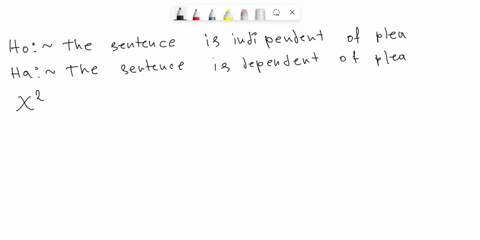 Ho:~ The sentence is indipendent of plea
Ha:~ The sentence is dependent of plea
χ²